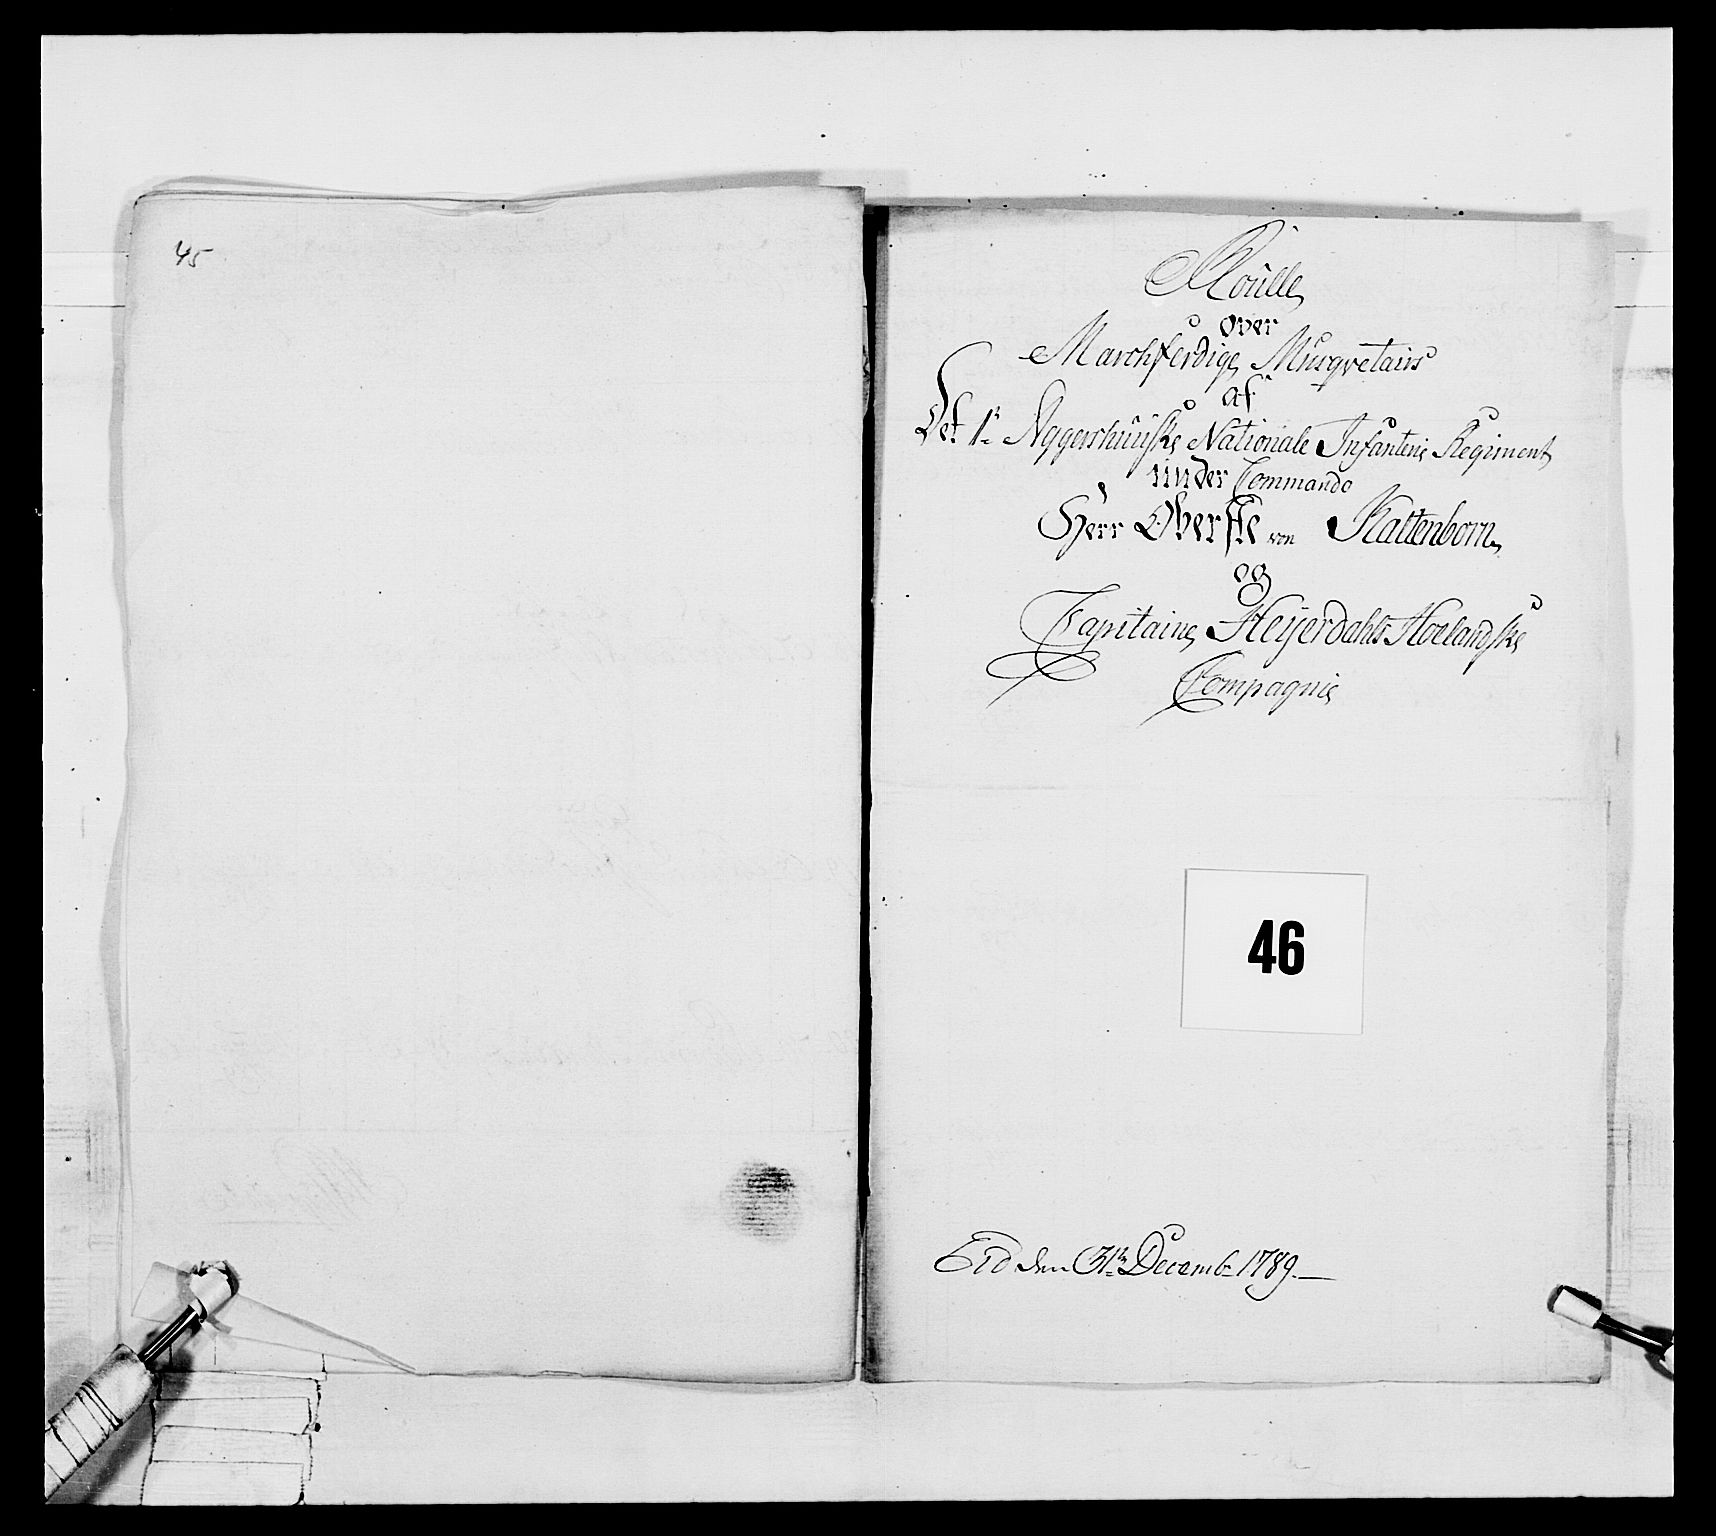 45
Roulle
over
Marchferdige Musqvetairs
af
Det 1te Aggershuuiske Nationale Infanterie Regiment
under Commando
Herr Oberste von Kaltenborn
og
Capitaine Heyerdahls Hoelandske
Compagnie
46
Eid den 31te Decemb: 1789.